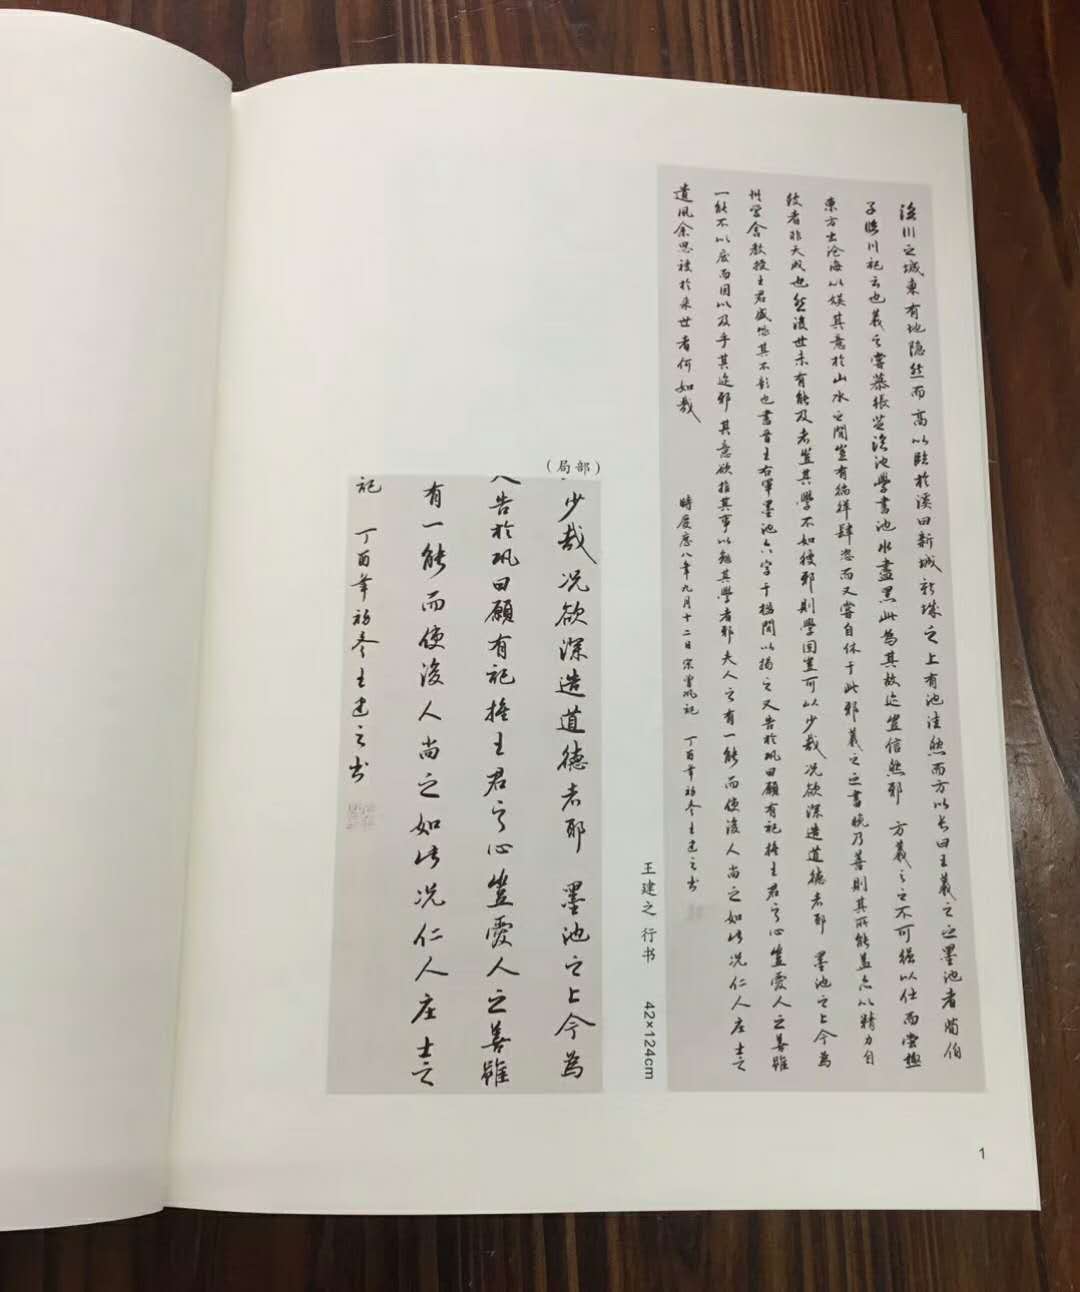 臨川之城東有地隐然而高以臨於溪曰新城新城之上有池洼然而方以长曰王羲之之墨池者荀伯
子臨川記云也羲之嘗慕張芝臨池學書池水盡黑此為其故迹豈信然邪 方羲之之不可强以仕而嘗極
東方出沧海以娱其意於山水之間豈有徜徉肆恣而又嘗自休于此邪羲之之書晚乃善則其所能蓋亦以精力自
致者非天成也然後世未有能及者豈其學不如彼邪則學固豈可以少哉况欲深造道德者耶 墨池之上今為
州學舍教授王君盛恐其不彰也書晋王右軍墨池六字于楹間以揭之又告於巩曰願有記推王君之心豈愛人之善雖
一能不以廢而因以及乎其迹邪其意欲推其事以勉其學者邪夫人之有一能而使後人尚之如此况仁人庄士之
遺風余思被於来世者何如哉 時慶曆八年九月十二日宋曾巩記 丁酉年初冬王建之书
王建之 行书 42×124cm
(局部)
少哉况欲深造道德者耶 墨池之上今為
又告於巩曰願有記推王君之心豈愛人之善雖
有一能而使後人尚之如此况仁人庄士之
記 丁酉年初冬王建之书
1